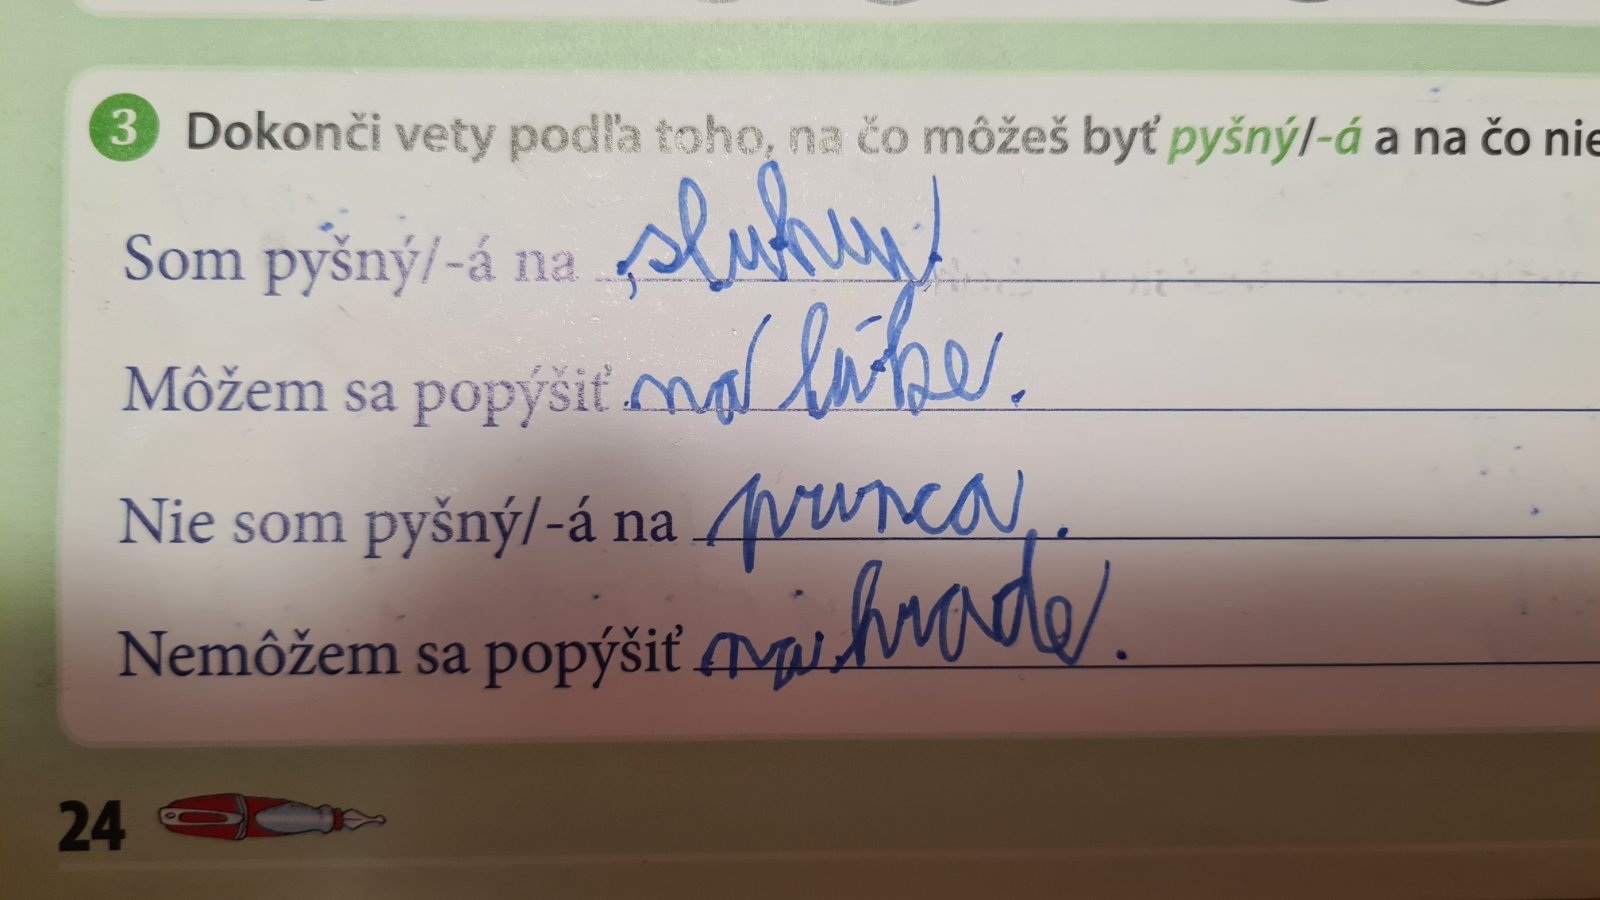 3 Dokonči vety podľa toho, na čo môžeš byť pyšný/-á a na čo nie
Som pyšný/-á na sluhu
Môžem sa popýšiť na lúke.
Nie som pyšný/-á na princa.
Nemôžem sa popýšiť na hrade.
24